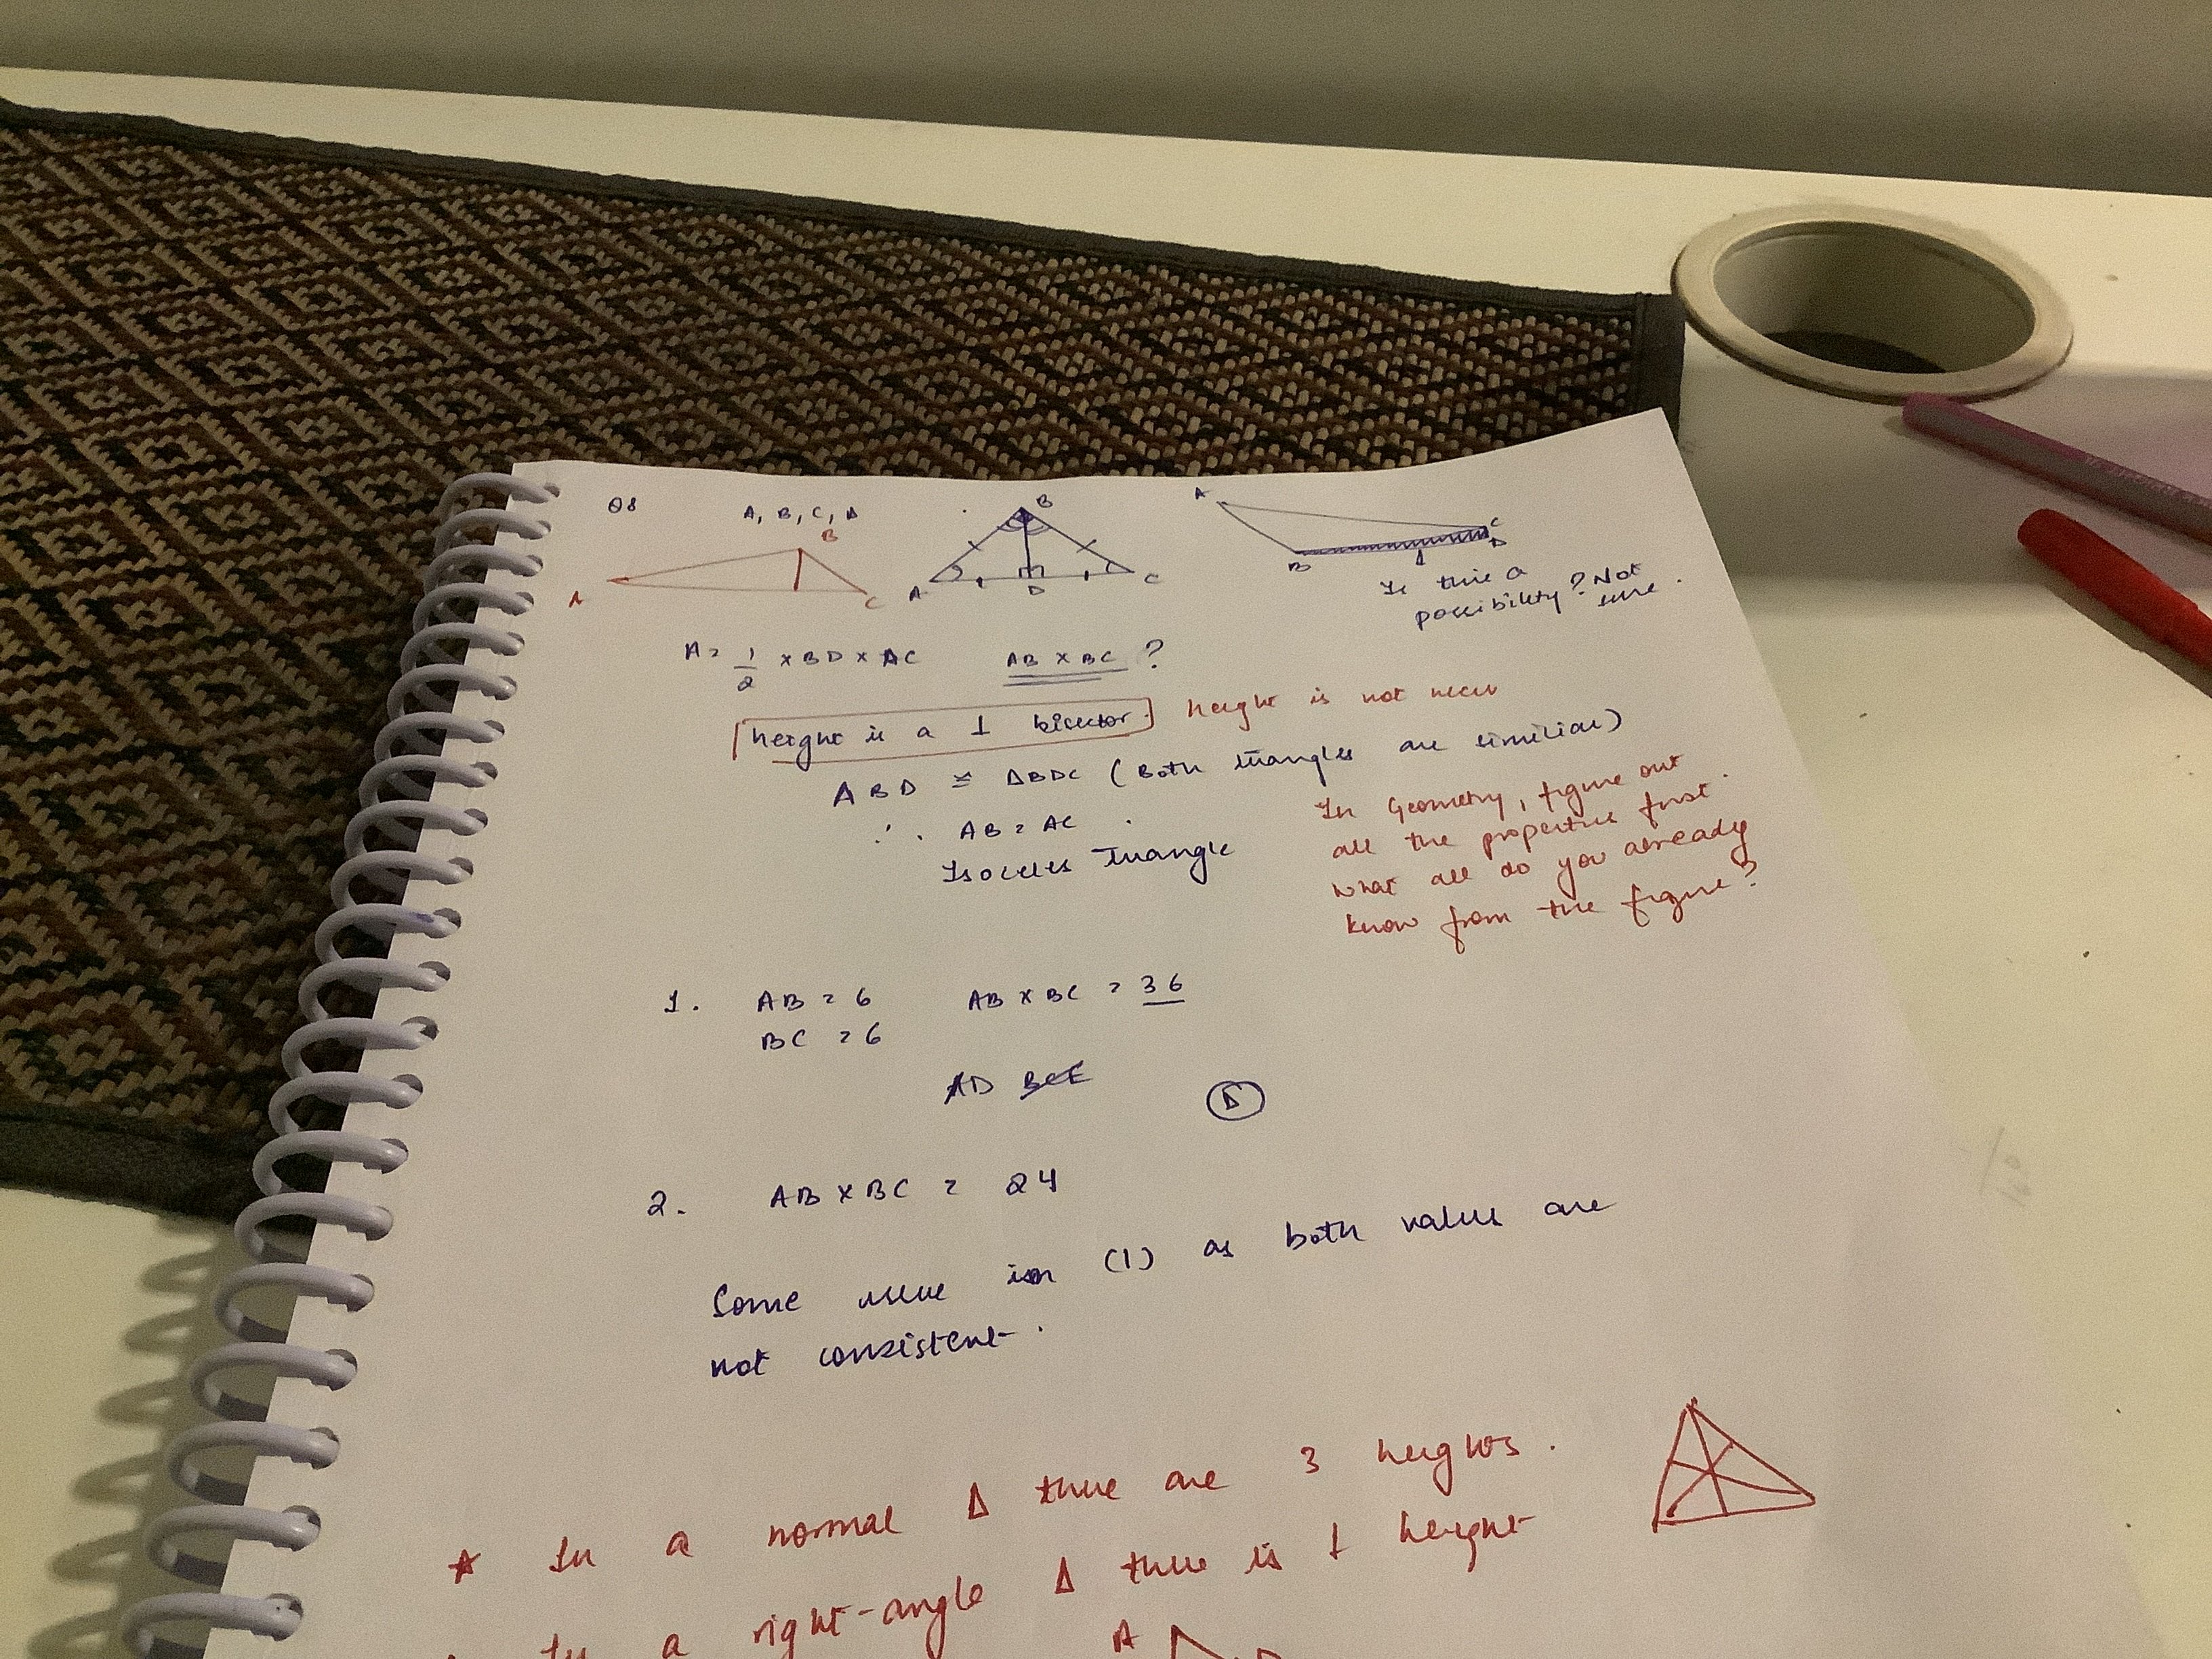 Q8
A, B, C, D
B
A
C
B
A
D
C
A
B
C
D
Is this a
possibility? Not
sure.
A = 1/2 × BD × AC
AB × BC ?
height is a ⊥ bisector.
height is not necess
ABD ≅ ΔBDC (Both triangles are similiar)
∴ AB = AC
Isoceles Triangle
In Geometry, figure out
all the properties first.
what all do you already
know from the figure?
1. AB = 6
AB × BC = 36
BC = 6
AD BCE
D
2. AB × BC = 24
Some issue in (1) as both values are
not consistent.
* In a normal Δ there are 3 heights.
In a right-angle Δ there is 1 height
A